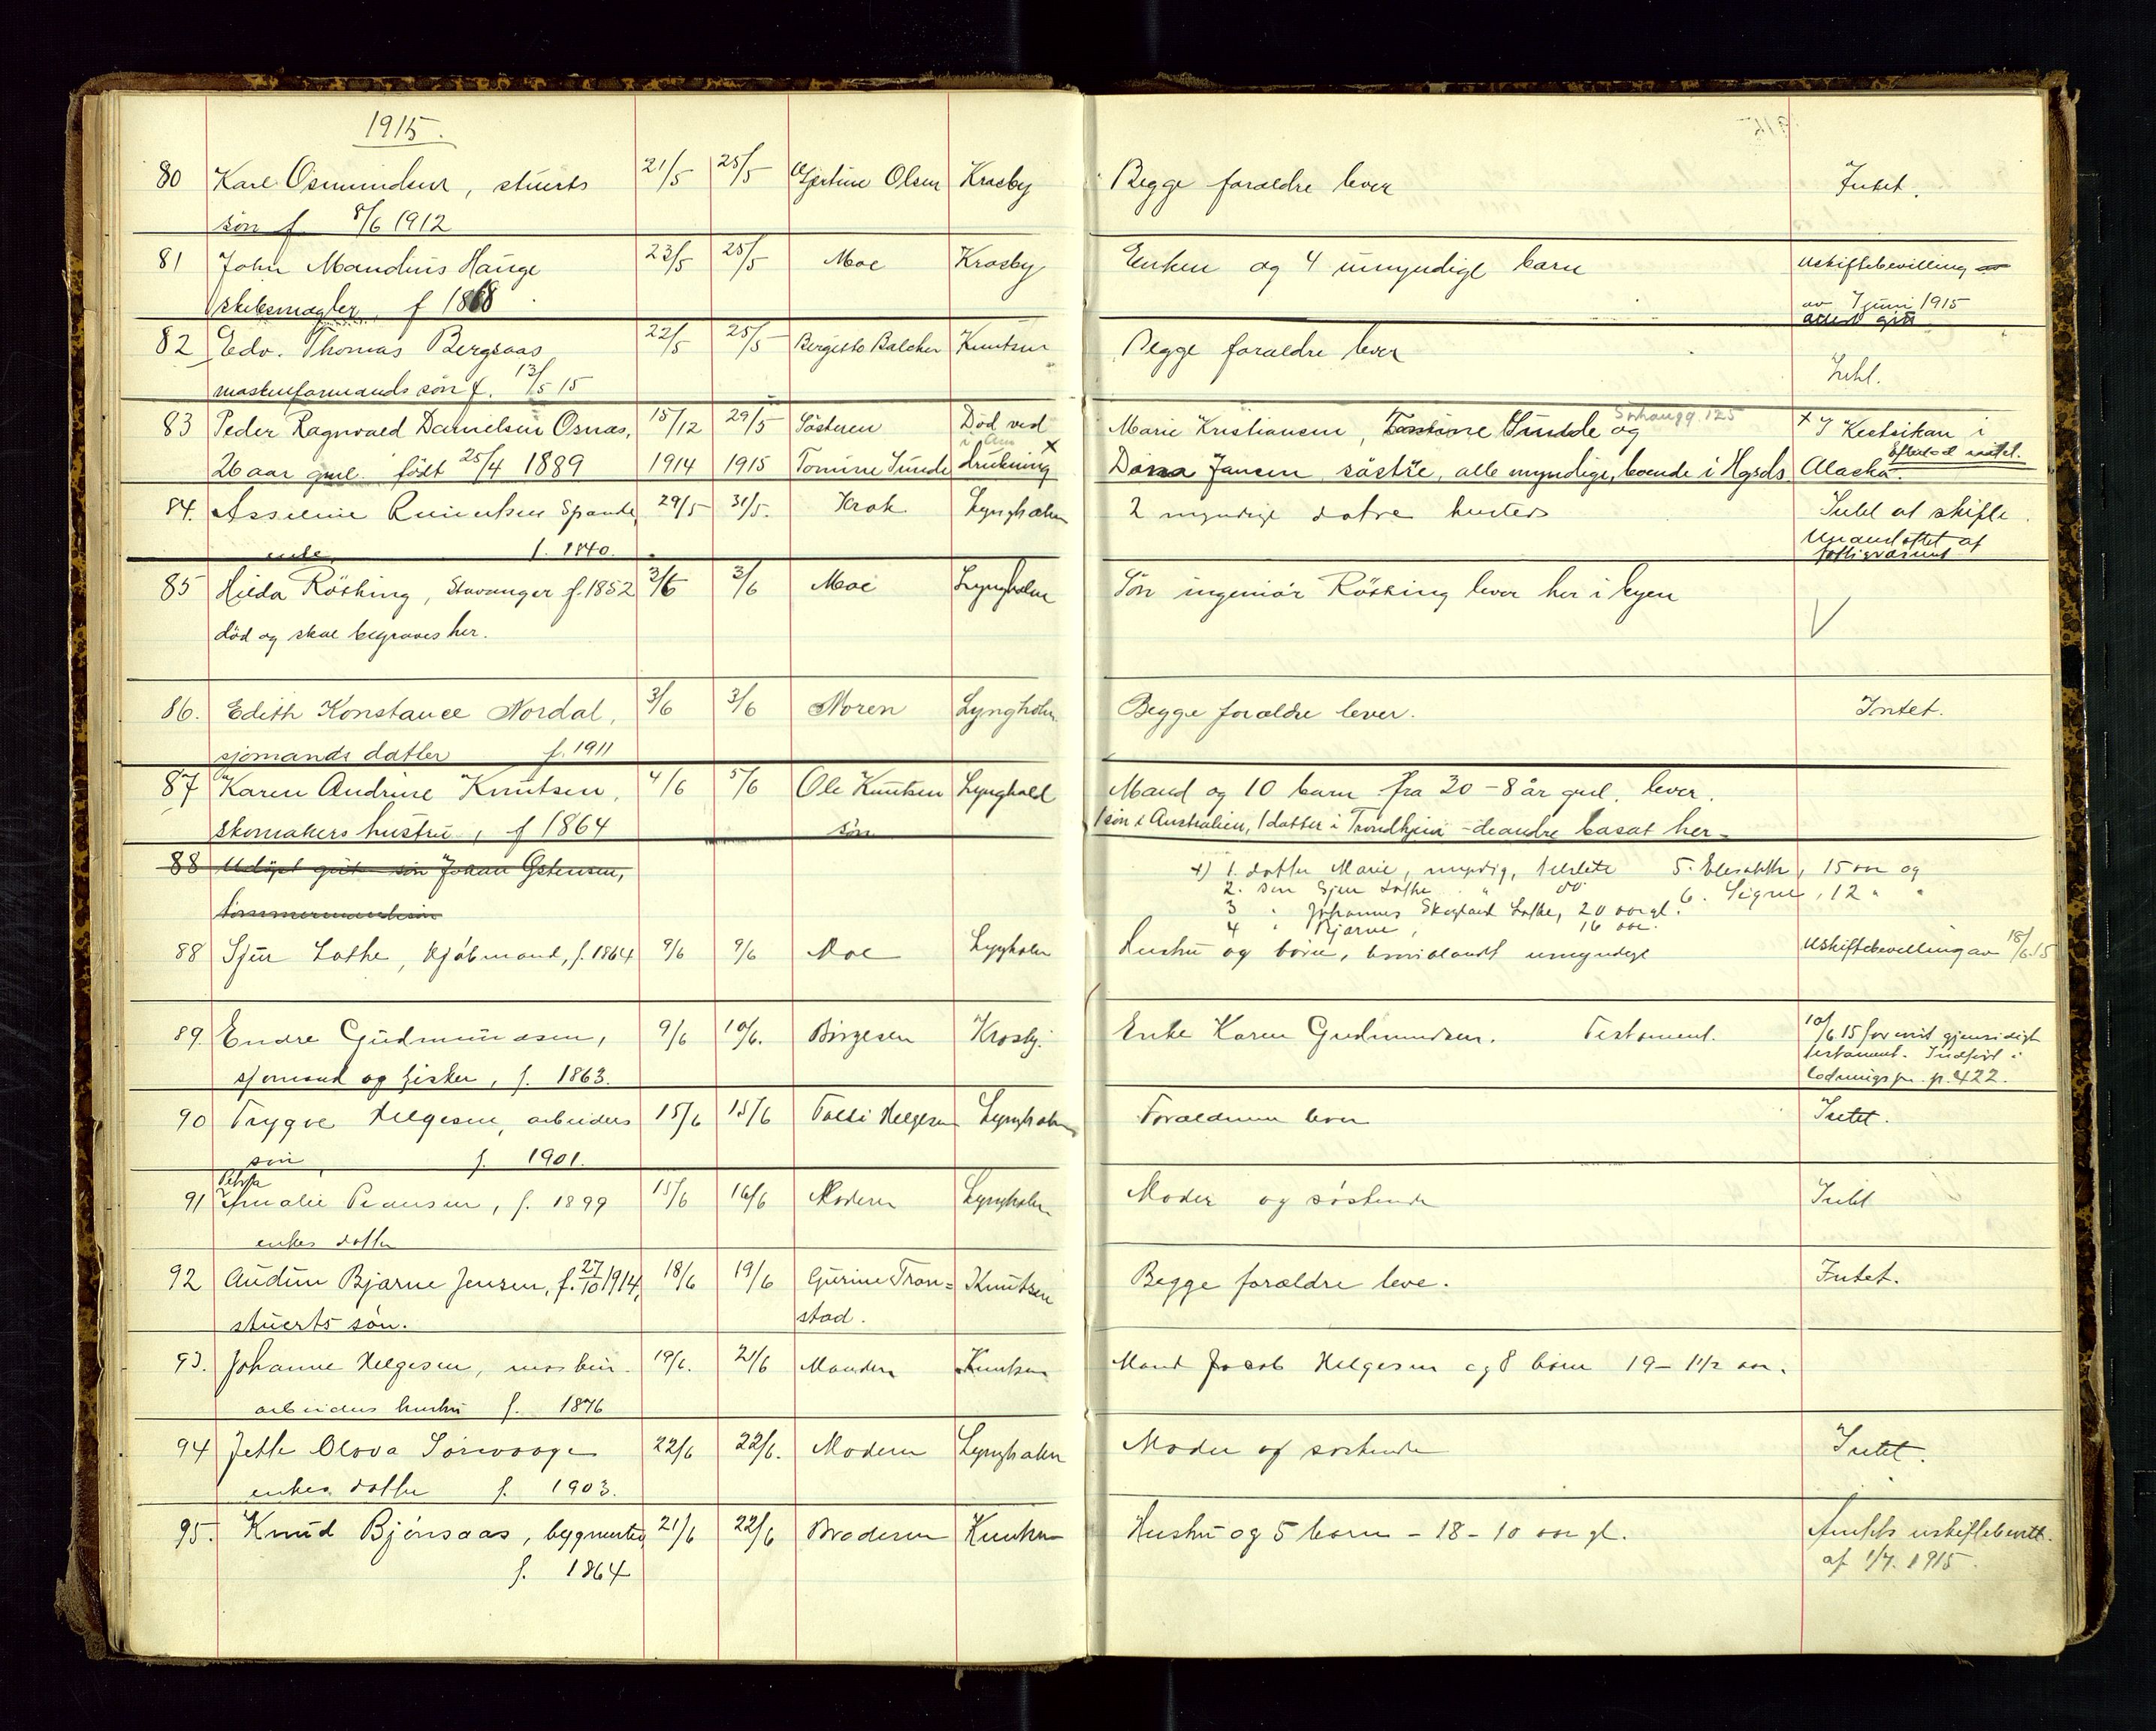 1915.
80 Karl Osmundsen, stuerts 21/5 25/5 Gjertine Olsen Krosby Begge forældre lever Intet.
søn f. 8/6 1912
81 John Mandius Hauge 23/5 25/5 Moe Krosby Enken og 4 umyndige barn Uskiftebevilling
skibsmægler f 1868 av 7 juni 1915
82 Edv. Thomas Bergsaas 22/5 25/5 Knutsen Begge forældre lever Intet.
maskinformands søn f. 13/5 15
83 Peder Ragnvald Danielsen Osnæs, 15/12 29/5 Søsteren Død ved Marie Kristiansen, Tomine Sunde og Sørhaugg. 125 x I Ketsikan i
26 aar gml. født 25/4 1889 1914 1915 Tomine Sunde drukning x Dona Jansen, søstre, alle myndige, boende i Hgsds. Alaska.
84. Spande, 29/5 31/5. Krok Lyngholm 2 myndige døtre Intet at skifte.
enke f. 1840.
85 Hilda Røsking, Stavanger f. 1852 2/6 3/6 Moe Lyngholm Søn ingeniør Røsking lever her i byen
død og skal begraves her.
86. Edith Konstance Nordal, 3/6 3/6 Noren Lyngholm Begge forældre lever. Intet.
sjømands datter f. 1911
87 Karen Andrine Knutsen, 4/6 5/6 Ole Knutsen Mand og 10 barn fra 20 – 8 år gml. lever.
skomakers hustru, f 1864 søn 1 søn i Australien, 1 datter i Trondhjem – de andre bosat her –
88 Udøpt gut søn Johan
tømmermand
1. datter Marie, myndig, 5. Elisabeth, 15 aar og
2. søn Sjur Lothe " do 6. Signe, 12 " "
3 " Johannes Skogland Lothe, 20 aar gl.
4 " Bjarne, 16 aar.
88 Sjur Lothe, kjøbmand, f. 1864 9/6 9/6 Moe Lyngholm Hustru og børn, umyndige Uskiftebevilling av 18/6.15
89. Endre Gudmundsen, 9/6 10/6. Birgesen Krosby. Enke Karen Gudmundsen. Testament. 10/6.15 gjensidigt
sjømand og fisker, f. 1863. testament. Indført i
p. 422.
90 Trygve Helgesen, arbeiders 15/6 15/6 Helgesen Lyngholm Forældrene lever Intet.
søn f. 1901.
91 Petra Amalie f. 1899 15/6 16/6 Moderen Lyngholm Moder og søskende Intet
enkes datter
92 Audun Bjarne Jensen, f. 27/10 1914, 18/6 19/6 Gurine Tron= Knutsen Begge forældre leve. Intet.
stuerts søn. stad.
93. Johanne Helgesen, maskin- 19/6. 21/6 Manden Knutsen Mand Jacob Helgesen og 8 børn 19 – 1 1/2 aar.
arbeiders hustru f. 1876
94 Jette Olava Sørvaage 22/6 22/6. Moderen Lyngholm Moder og søskende Intet.
enkes datter f. 1903.
95. Knud Bjønsaas, bygmester 21/6 22/6 Broderen Knutsen Hustru og 5 barn – 18 – 10 aar gl. Amtets uskiftebevill.
f. 1864 af 1/7. 1915.